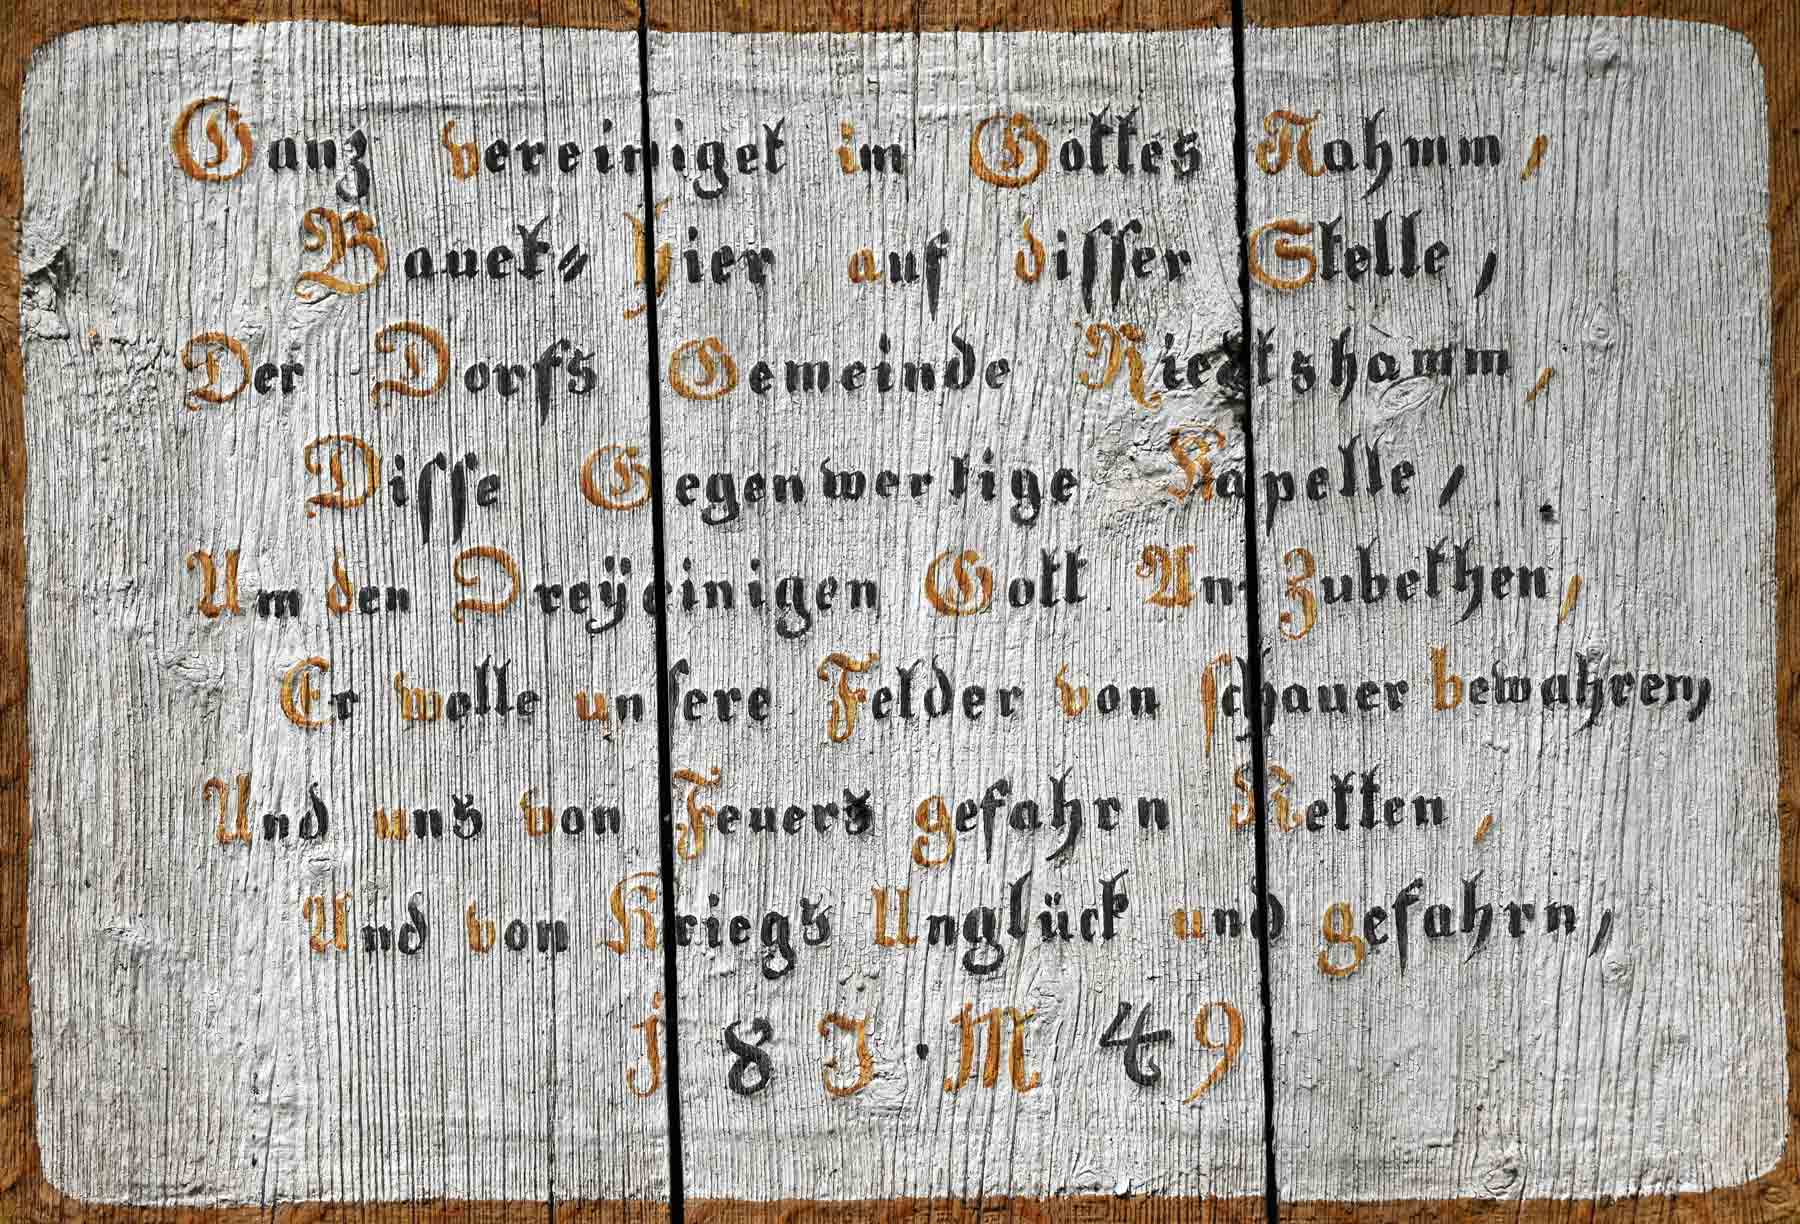 Ganz vereiniget im Gottes Nahmm,
Bauet⸗ hier auf disser Stelle,
Der Dorfs Gemeinde Riettshamm,
Disse Gegenwertige Kapelle,
Um den Dreÿeinigen Gott An Zubethen,
Er wolle unsere Felder von schauer bewahren,
Und uns von Feuers gefahrn Retten,
Und von Kriegs Unglück und gefahrn,
18 J. M 49